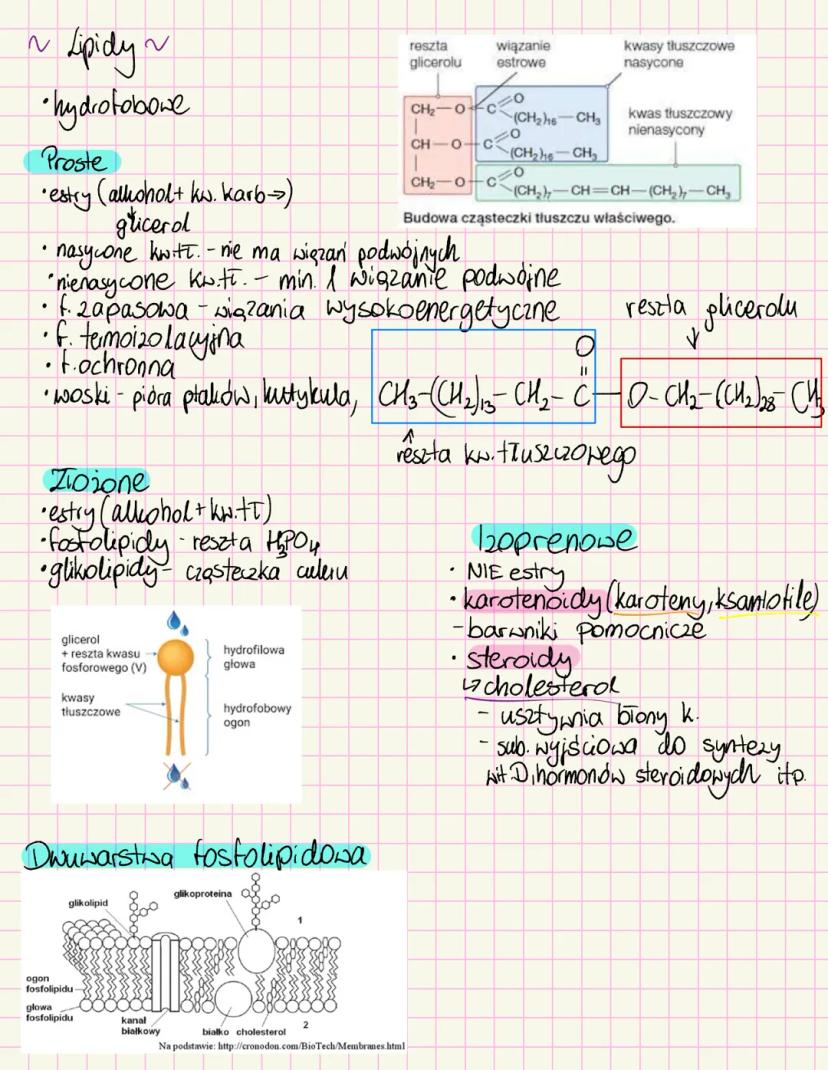 ~ Lipidy ~
• hydrofobowe
reszta glicerolu
wiązanie estrowe
kwasy tłuszczowe nasycone
CH₂—O—C=O
(CH₂)₁₆—CH₃
CH—O—C=O
(CH₂)₁₆—CH₃
kwas tłuszczowy nienasycony
CH₂—O—C=O
(CH₂)₇—CH=CH—(CH₂)₇—CH₃
Budowa cząsteczki tłuszczu właściwego.
Proste
• estry (alkohol + kw. karb →)
glicerol
• nasycone kw.tł. - nie ma wiązań podwójnych
• nienasycone kw.tł. - min. 1 wiązanie podwójne
• f. zapasowa - wiązania wysokoenergetyczne
• f. termoizolacyjna
• f. ochronna
• woski - pióra ptaków, kutykula,
reszta glicerolu
O
CH₃-(CH₂)₁₃-CH₂-C-O-CH₂-(CH₂)₂₈-CH₃
reszta kw. tłuszczowego
Złożone
• estry (alkohol + kw.tł)
• fosfolipidy - reszta H₃PO₄
• glikolipidy - cząsteczka cukru
glicerol
+ reszta kwasu
fosforowego (V)
hydrofilowa
głowa
kwasy
tłuszczowe
hydrofobowy
ogon
Izoprenowe
• NIE estry
• karotenoidy (karoteny, ksantofile)
- barwniki pomocnicze
• steroidy
↳ cholesterol
- usztywnia błony k.
- sub. wyjściowa do syntezy
wit D, hormonów steroidowych itp.
Dwuwarstwa fosfolipidowa
glikolipid
glikoproteina
1
ogon
fosfolipidu
głowa
fosfolipidu
kanał
białkowy
białko
cholesterol
2
Na podstawie: http://cronodon.com/BioTech/Membranes.html